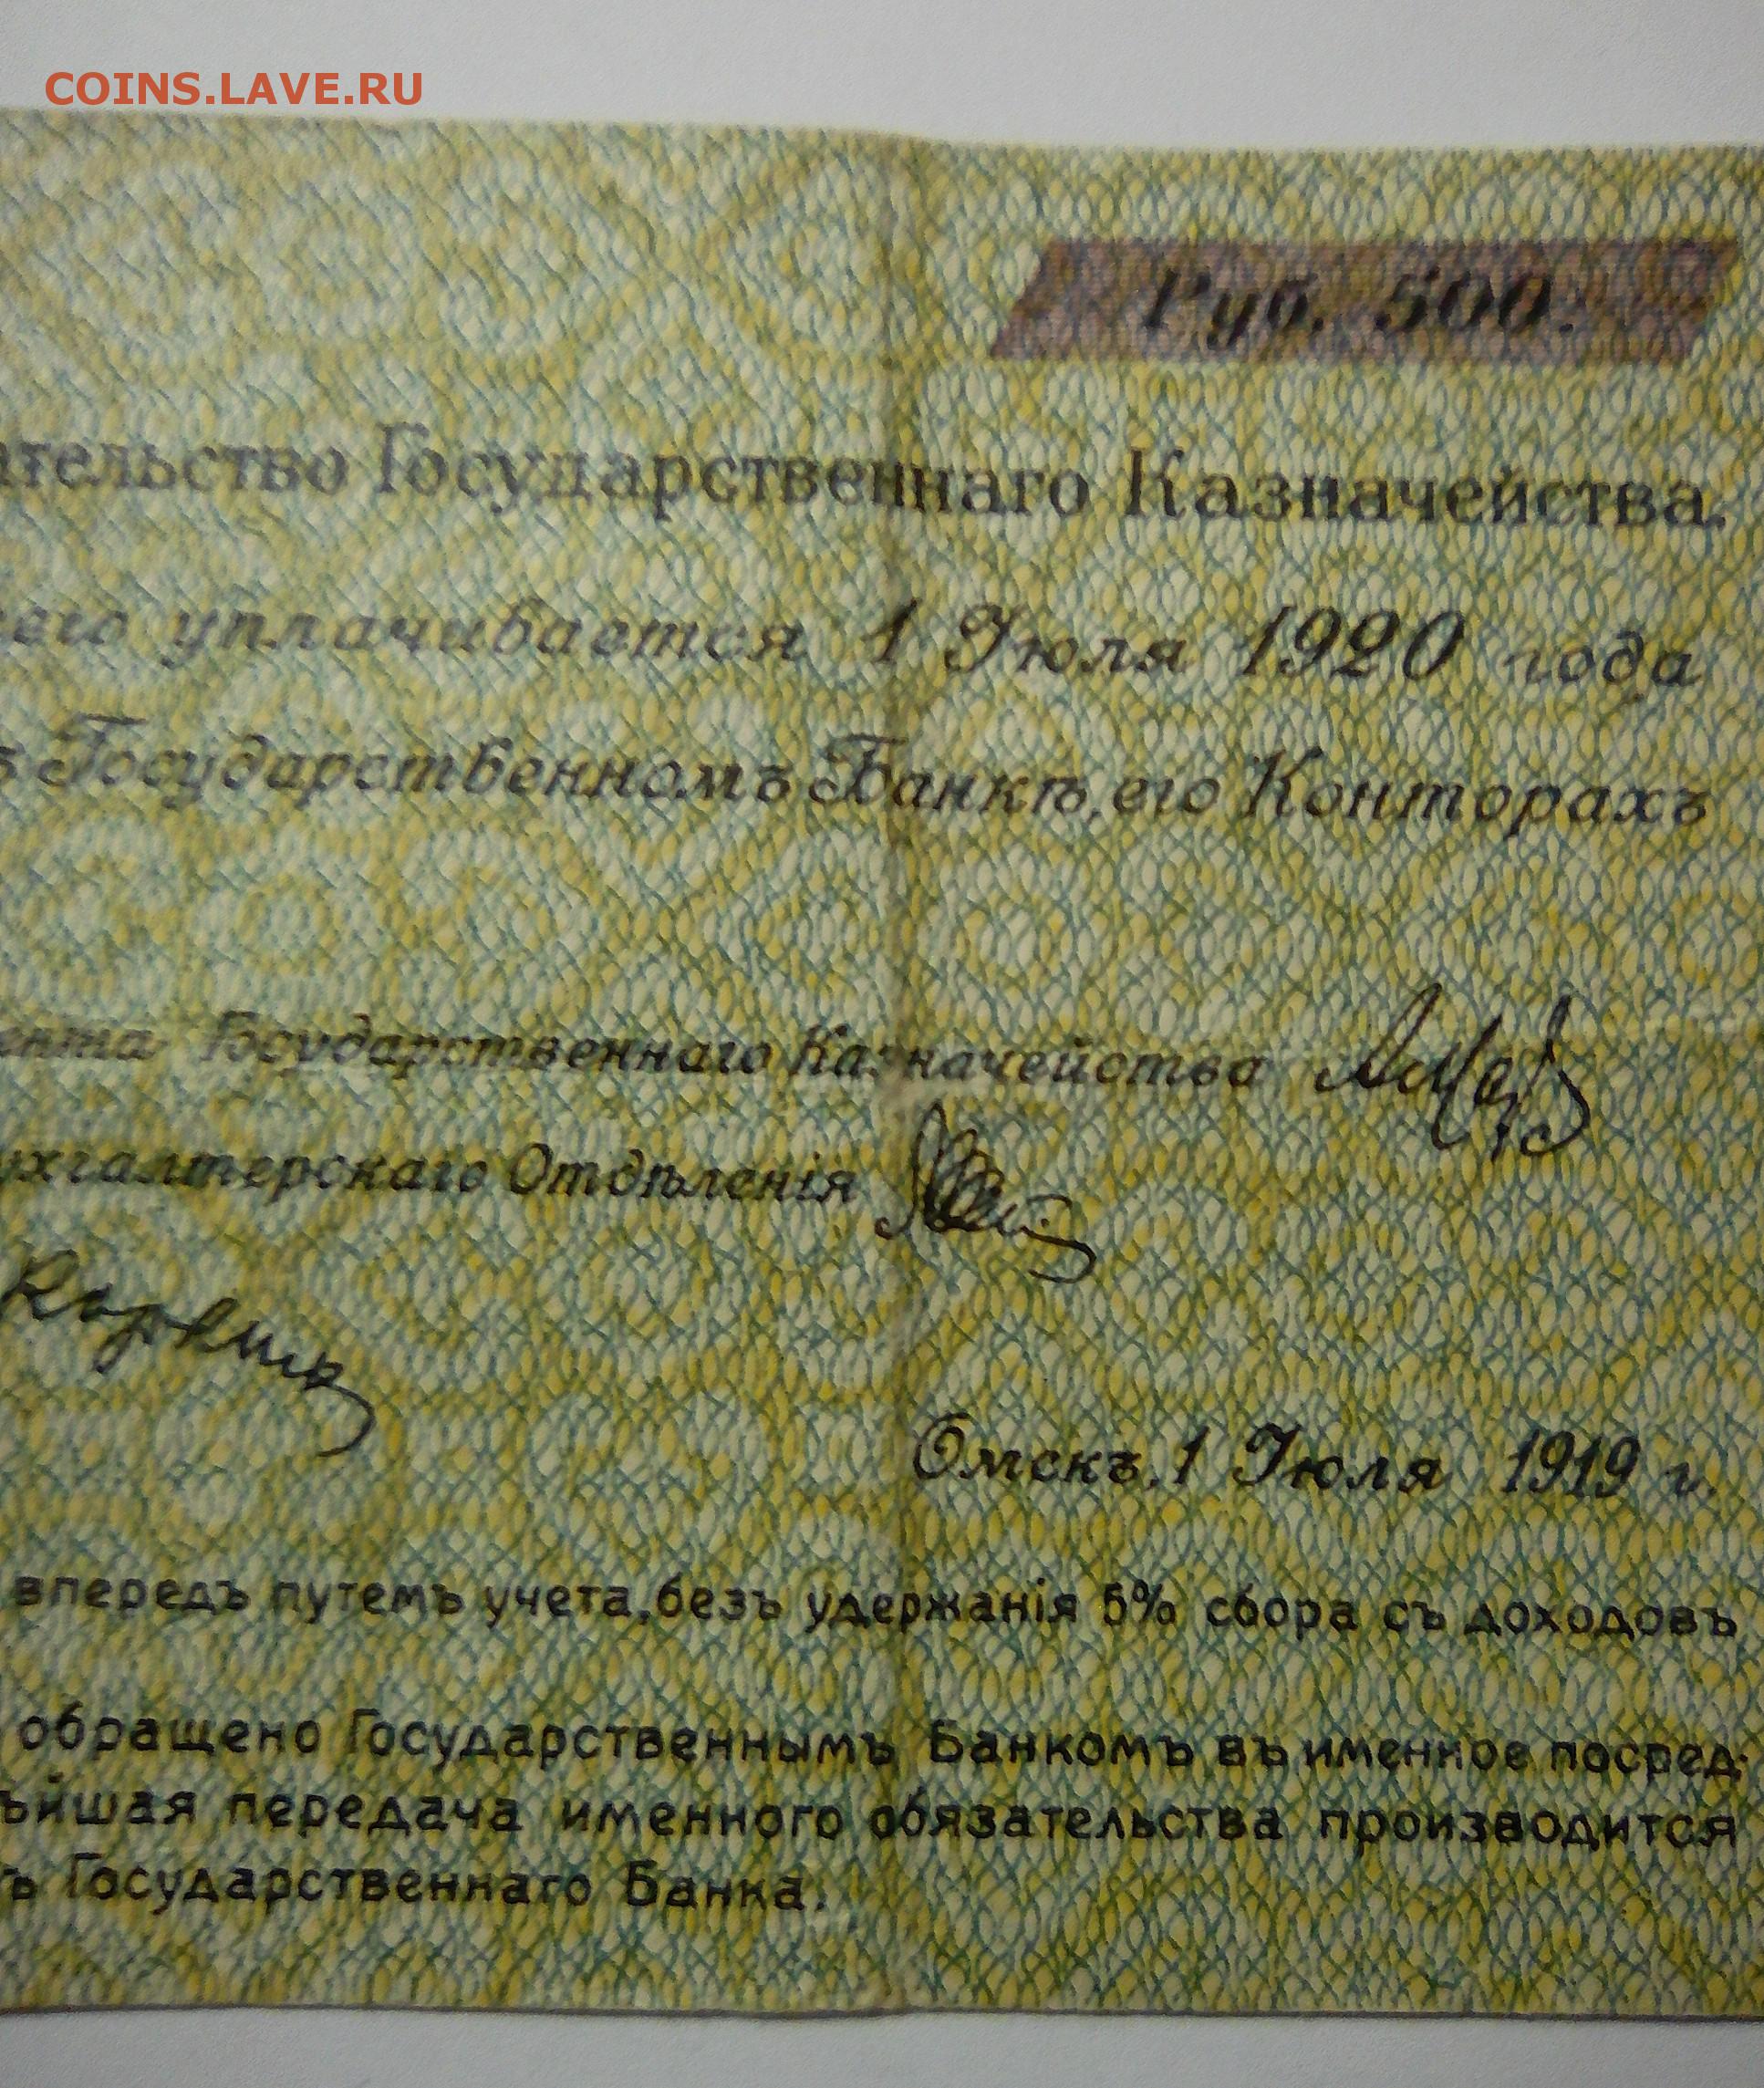 COINS.LAVE.RU
Руб. 500.
ательство Государственнаго Казначейства.
его уплачивается 1 Іюля 1920 года
ъ Государственномъ Банкѣ, его Конторахъ
ента Государственнаго Казначейства
ухгалтерскаго Отдѣленія
Омскъ, 1 Іюля 1919 г.
впередъ путемъ учета, безъ удержанія 5% сбора съ доходовъ
обращено Государственнымъ Банкомъ въ именное посред-
ьйшая передача именного обязательства производится
ъ Государственнаго Банка.